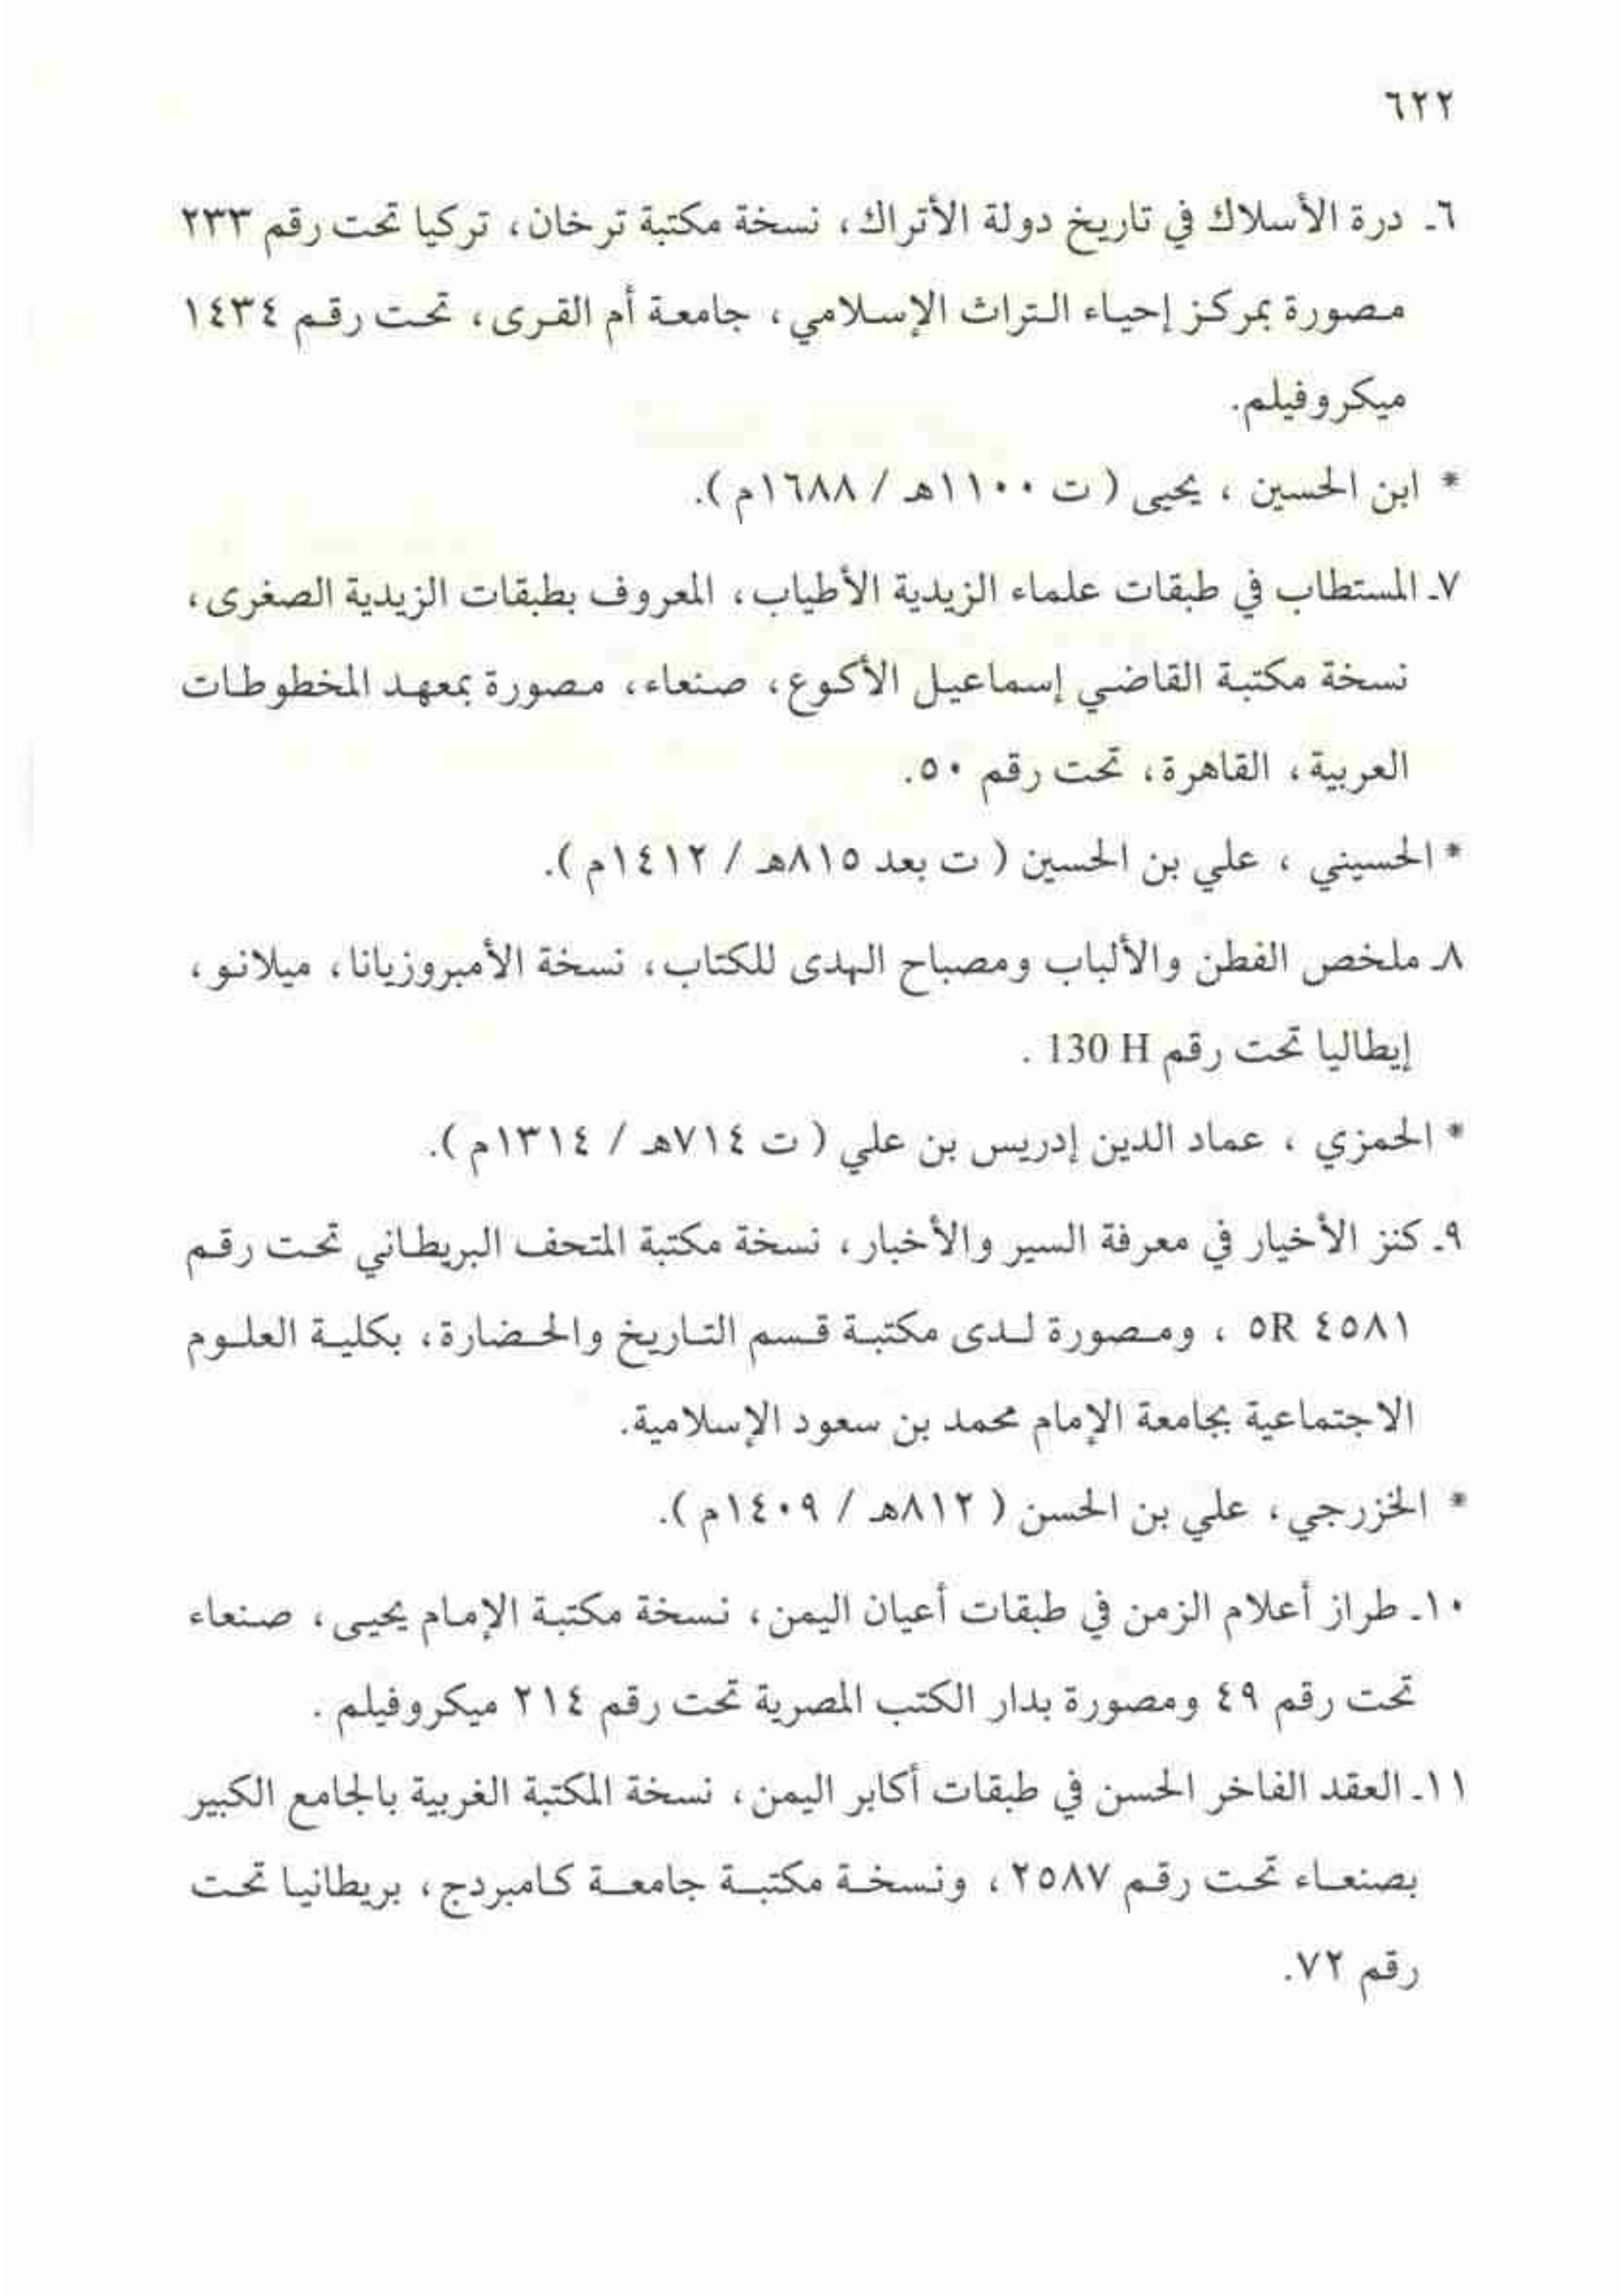 ٦٢٢
٦ـ درة الأسلاك في تاريخ دولة الأتراك، نسخة مكتبة ترخان، تركيا تحت رقم ٢٣٣
مصورة بمركز إحياء التراث الإسلامي، جامعة أم القرى، تحت رقم ١٤٣٤
ميكروفيلم.
* ابن الحسين ، يحيى ( ت ١١٠٠هـ / ١٦٨٨م ).
٧ـ المستطاب في طبقات علماء الزيدية الأطياب، المعروف بطبقات الزيدية الصغرى،
نسخة مكتبة القاضي إسماعيل الأكوع، صنعاء، مصورة بمعهد المخطوطات
العربية، القاهرة، تحت رقم ٥٠.
* الحسيني ، علي بن الحسين ( ت بعد ٨١٥هـ / ١٤١٢م ).
٨ـ ملخص الفطن والألباب ومصباح الهدى للكتاب، نسخة الأمبروزيانا، ميلانو،
إيطاليا تحت رقم 130 H .
* الحمزي ، عماد الدين إدريس بن علي ( ت ٧١٤هـ / ١٣١٤م ).
٩ـ كنز الأخيار في معرفة السير والأخبار، نسخة مكتبة المتحف البريطاني تحت رقم
٤٥٨١ ٥R ، ومصورة لدى مكتبة قسم التاريخ والحضارة، بكلية العلوم
الاجتماعية بجامعة الإمام محمد بن سعود الإسلامية.
* الخزرجي، علي بن الحسن ( ٨١٢هـ / ١٤٠٩م ).
١٠ـ طراز أعلام الزمن في طبقات أعيان اليمن، نسخة مكتبة الإمام يحيى، صنعاء
تحت رقم ٤٩ ومصورة بدار الكتب المصرية تحت رقم ٢١٤ ميكروفيلم .
١١ـ العقد الفاخر الحسن في طبقات أكابر اليمن، نسخة المكتبة الغربية بالجامع الكبير
بصنعاء تحت رقم ٢٥٨٧، ونسخة مكتبة جامعة كامبردج، بريطانيا تحت
رقم ٧٢.